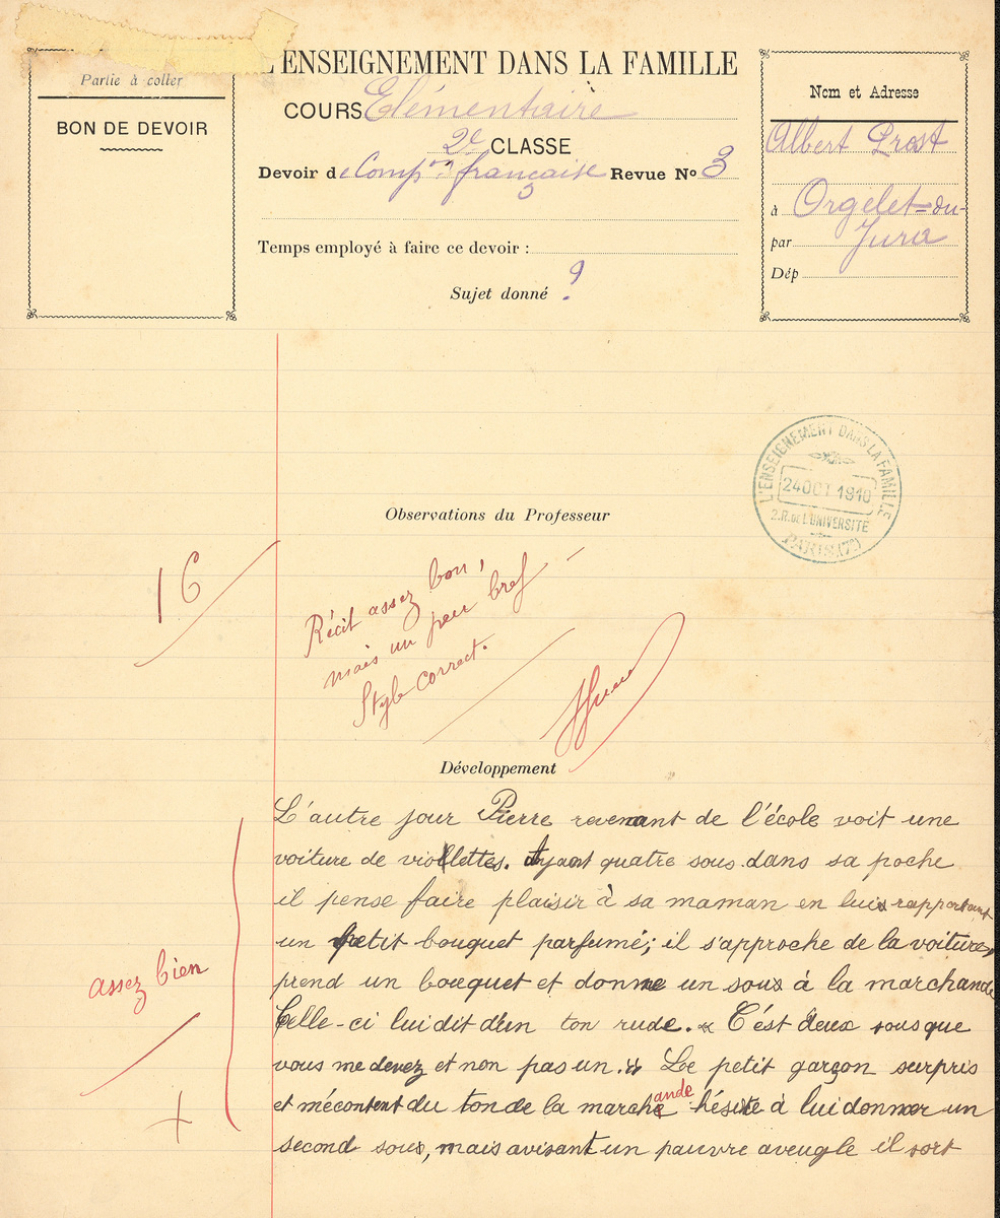 Partie à coller
BON DE DEVOIR
L'ENSEIGNEMENT DANS LA FAMILLE
COURS Elémentaire
2e CLASSE
Devoir de Compon française Revue No 3
Temps employé à faire ce devoir :
Sujet donné ?
Nom et Adresse
Albert Prost
à Orgelet-du-
par Jura
Dép
L'ENSEIGNEMENT DANS LA FAMILLE
24 OCT 1910
2.R. DE L'UNIVERSITÉ
PARIS (7e)
Observations du Professeur
16
Récit assez bon,
mais un peu bref
Style correct.
Développement
L'autre jour Pierre revenant de l'école voit une
voiture de violettes. Ayant quatre sous dans sa poche
il pense faire plaisir à sa maman en lui rapportant
un petit bouquet parfumé; il s'approche de la voiture,
prend un bouquet et donne un sou à la marchande
Celle-ci lui dit d'un ton rude. « C'est deux sous que
vous me devez et non pas un. » Le petit garçon surpris
et mécontent du ton de la marchande hésite à lui donner un
second sou, mais avisant un pauvre aveugle il sort
assez bien